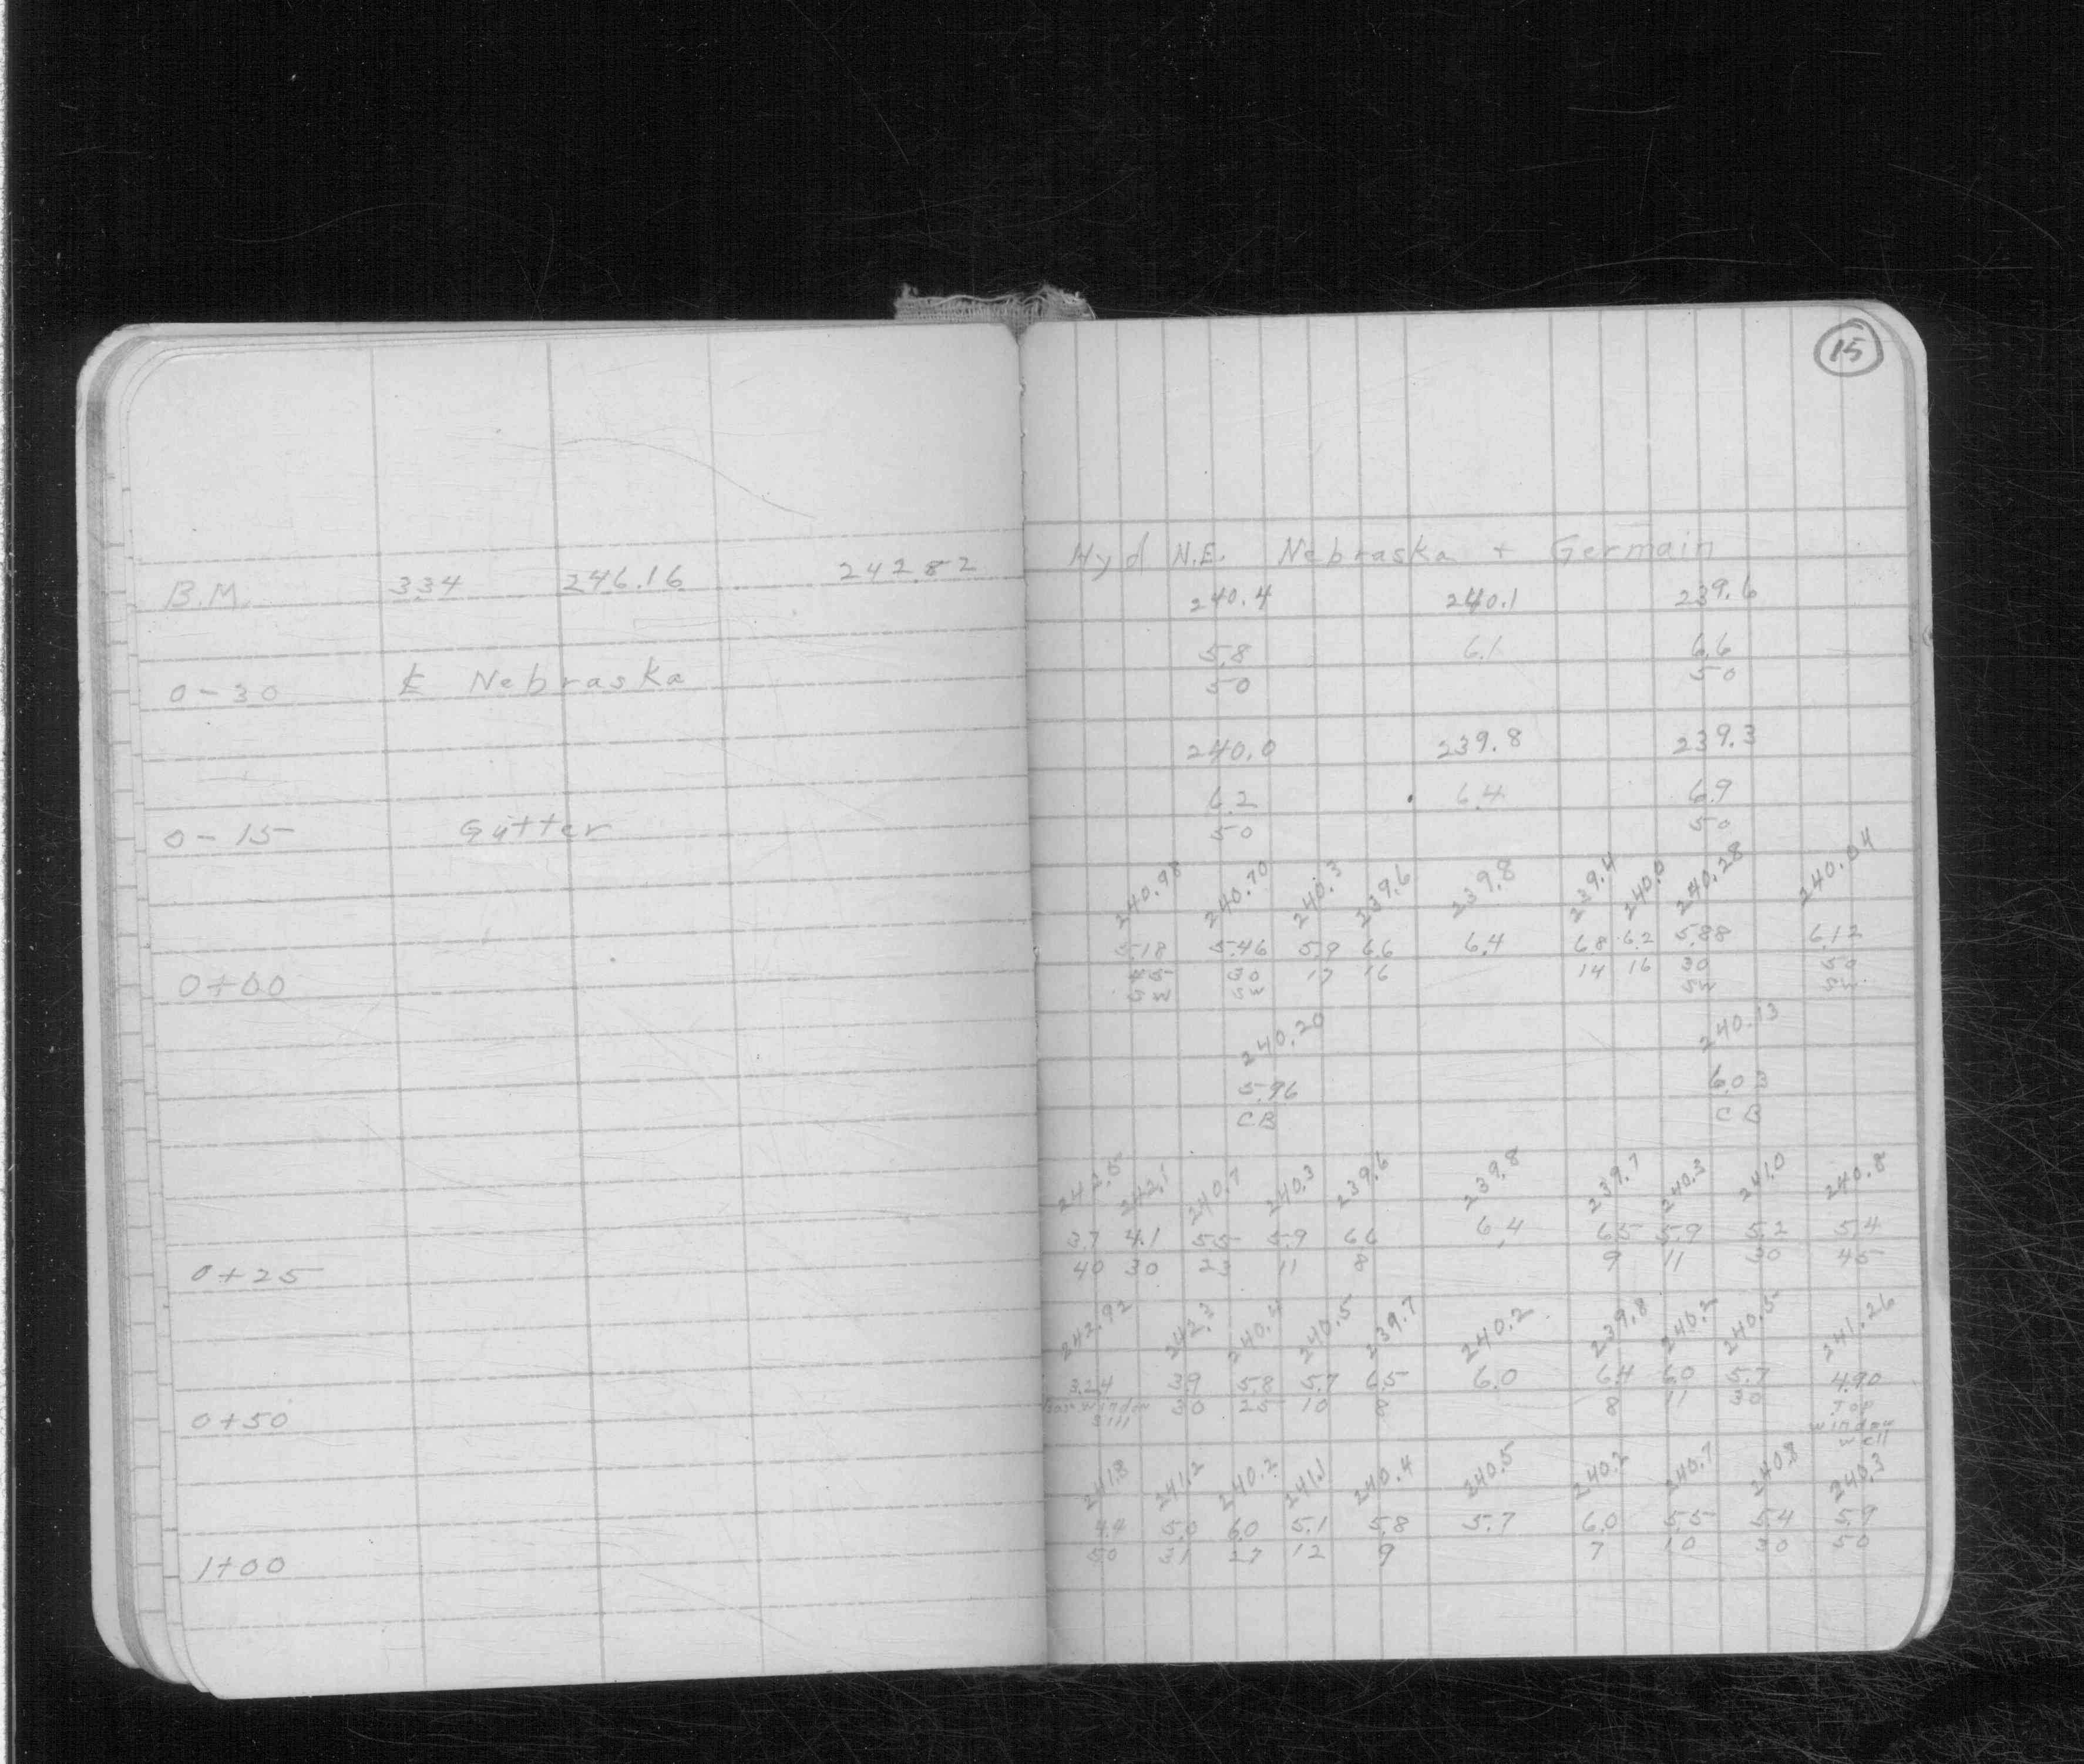 15
B.M. 3.34 246.16 242.82 Hyd N.E. Nebraska + Germain
240.4 240.1 239.6
5.8 6.1 6.6
0-30 ℄ Nebraska 50 50
240.0 239.8 239.3
6.2 6.4 6.9
0-15 Gutter 50 50
240.98 240.70 240.3 239.6 239.8 239.4 240.0 240.28 240.04
5.18 5.46 5.9 6.6 6.4 6.8 6.2 5.88 6.12
0+00 45 30 17 16 14 16 30 50
SW SW SW SW
240.20 240.13
5.96 6.03
CB CB
242.5 242.1 240.7 240.3 239.6 239.8 239.7 240.3 241.0 240.8
3.7 4.1 5.5 5.9 6.6 6.4 6.5 5.9 5.2 5.4
0+25 40 30 23 11 8 9 11 30 45
242.92 242.3 240.4 240.5 239.7 240.2 239.8 240.2 240.5 241.26
3.24 3.9 5.8 5.7 6.5 6.0 6.4 6.0 5.7 4.90
0+50 window 30 25 10 8 8 11 30 Top
Sill window
well
241.8 241.2 240.2 241.1 240.4 240.5 240.2 240.7 240.8 240.3
4.4 5.0 6.0 5.1 5.8 5.7 6.0 5.5 5.4 5.9
1+00 50 31 27 12 9 7 10 30 50